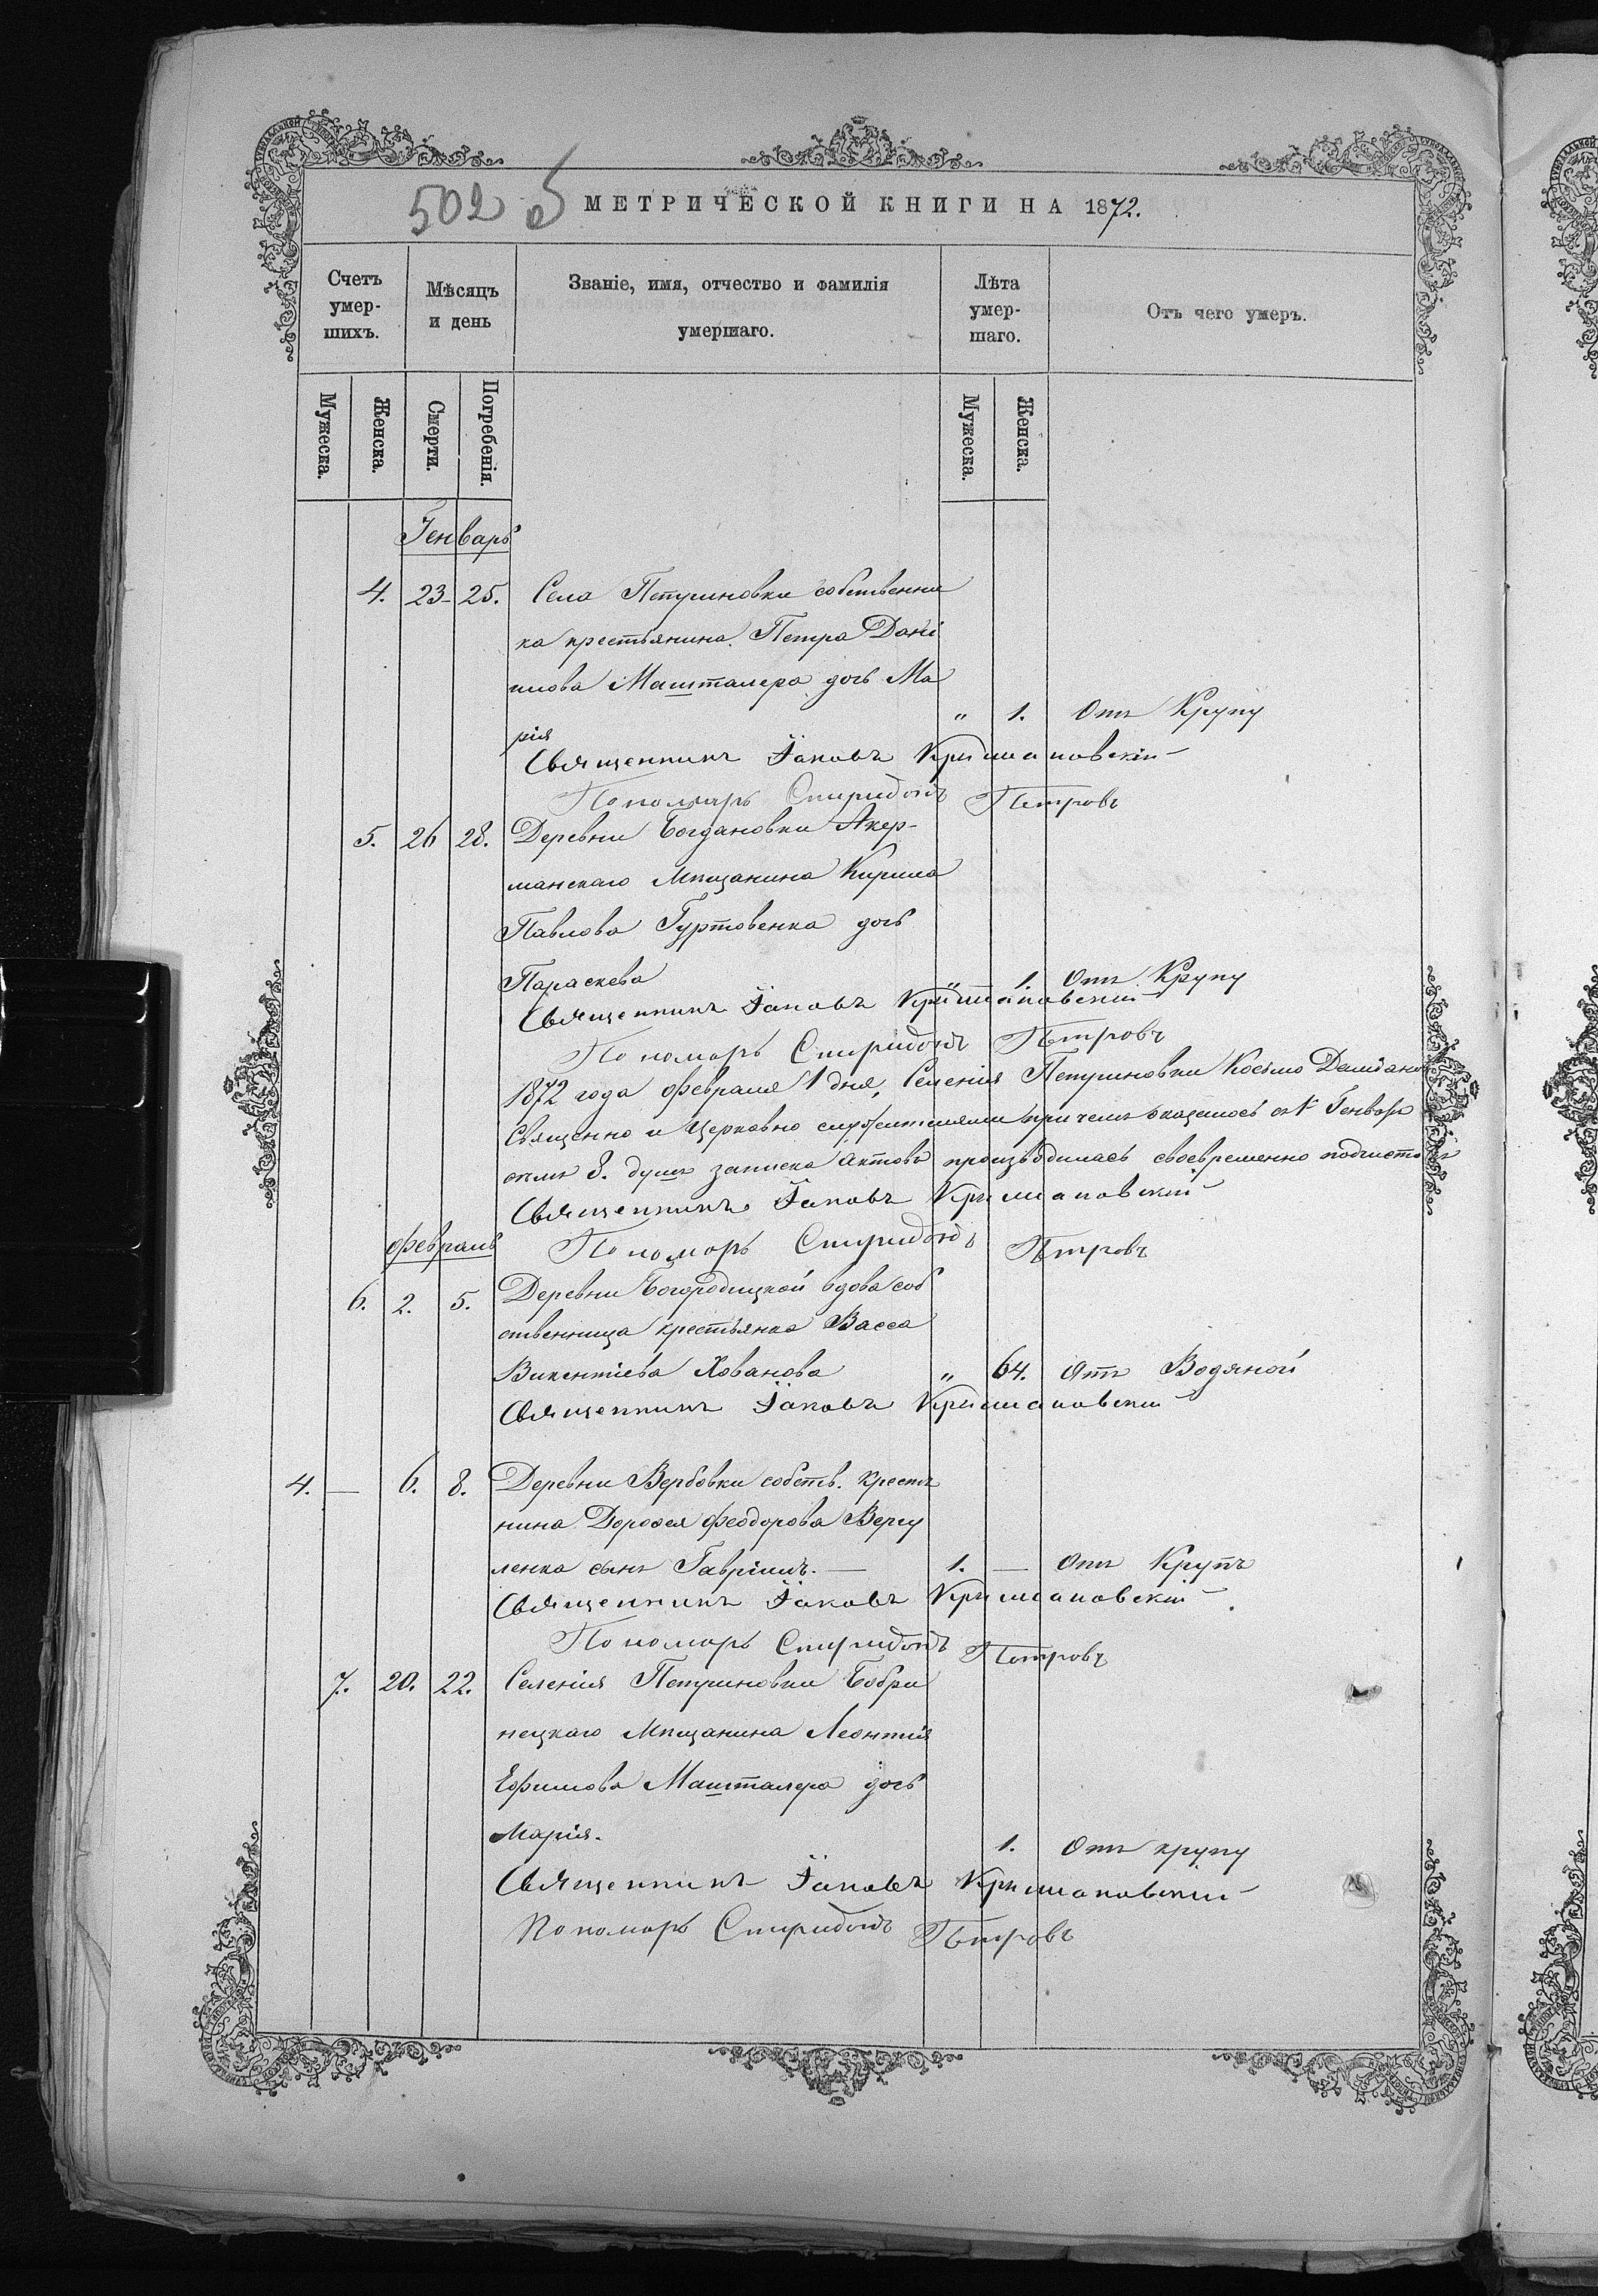 502 об
МЕТРИЧЕСКОЙ КНИГИ НА 1872.
Счетъ умершихъ.
Мѣсяцъ и день
Званіе, имя, отчество и фамилія умершаго.
Лѣта умершаго.
Отъ чего умеръ.
Мужеска.
Женска.
Смерти.
Погребенія.
Мужеска.
Женска.
Генварь
4. 23 25. Села Петриновки собственни
ка крестьянина Петра Дані
илова Машталера дочь Ма
рія „ 1. Отъ Крупу
Священникъ Іаковъ Кришановскій
Пономарь Спиридонъ Петровъ
5. 26 28. Деревни Богдановки Акер-
манскаго Мѣщанина Кирила
Павлова Гуртовенка дочь
Параскева „ 1. Отъ Крупу
Священникъ Іаковъ Кришановскій
Пономарь Спиридонъ Петровъ
1872 года Февраля 1 дня, Селенія Косьмо Даміано
Священно и Церковно служителями при чемъ оказалось съ 1 Генваря
8. душъ записка актовъ производилась своевременно
Священникъ Іаковъ Кришановскій
Пономарь Спиридонъ Петровъ
Февраль
6. 2. 5. Деревни Богородицкой вдова соб
ственница крестьянка Васса
Викентіева Хованова „ 64. Отъ Водяной
Священникъ Іаковъ Кришановскій
4. — 6. 8. Деревни Вербовки собств. крестья
нина Дорофея Феодорова Вергу
ленка сынъ Гавріилъ. — 1. — Отъ Крупъ
Священникъ Іаковъ Кришановскій
Пономарь Спиридонъ Петровъ
7. 20. 22. Селенія Петриновки Бобри
нецкаго Мѣщанина Леонтія
Ефимова Машталера дочь
Марія. 1. Отъ крупу
Священникъ Іаковъ Кришановскій
Пономарь Спиридонъ Петровъ